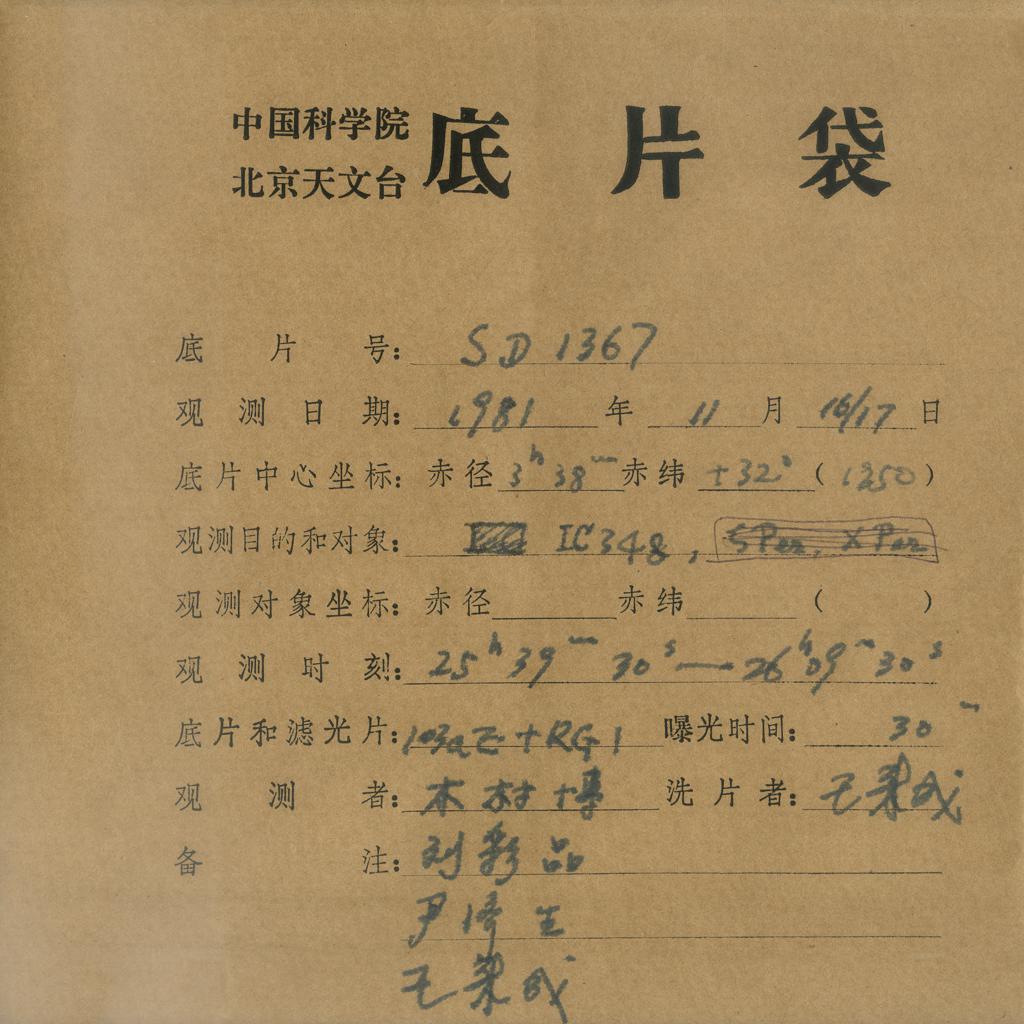 中国科学院
北京天文台
底片袋
底片号: SD 1367
观测日期: 1981 年 11 月 16/17 日
底片中心坐标: 赤径 3h 38m 赤纬 +32° (1950)
观测目的和对象: IC348, 5 Per, X Per
观测对象坐标: 赤径 赤纬 ( )
观测时刻: 25h 39m 30s — 26h 09m 30s
底片和滤光片: 103aE+RG1 曝光时间: 30m
观测者: 木村博 洗片者: 王荣成
备注: 刘彩品
尹济生
王荣成